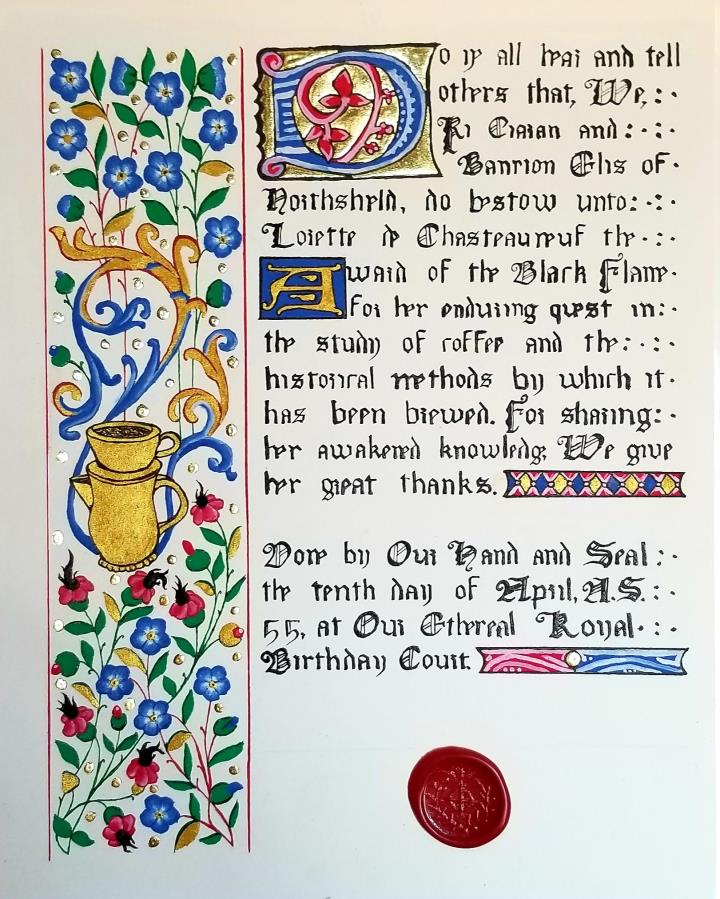 Do ye all hear and tell
others that, We, : ·
Ri Ciaran and : · : ·
Banrion Elis of ·
Northshield, do bestow unto: · : ·
Lorette de Chasteauneuf the · : ·
Award of the Black Flame ·
for her enduring quest in: ·
the study of coffee and the: · : ·
historical methods by which it ·
has been brewed. For sharing: ·
her awakened knowledge, We give
her great thanks.
Done by Our Hand and Seal : ·
the tenth day of April, A.S. : ·
55, at Our Ethereal Royal · : ·
Birthday Court.